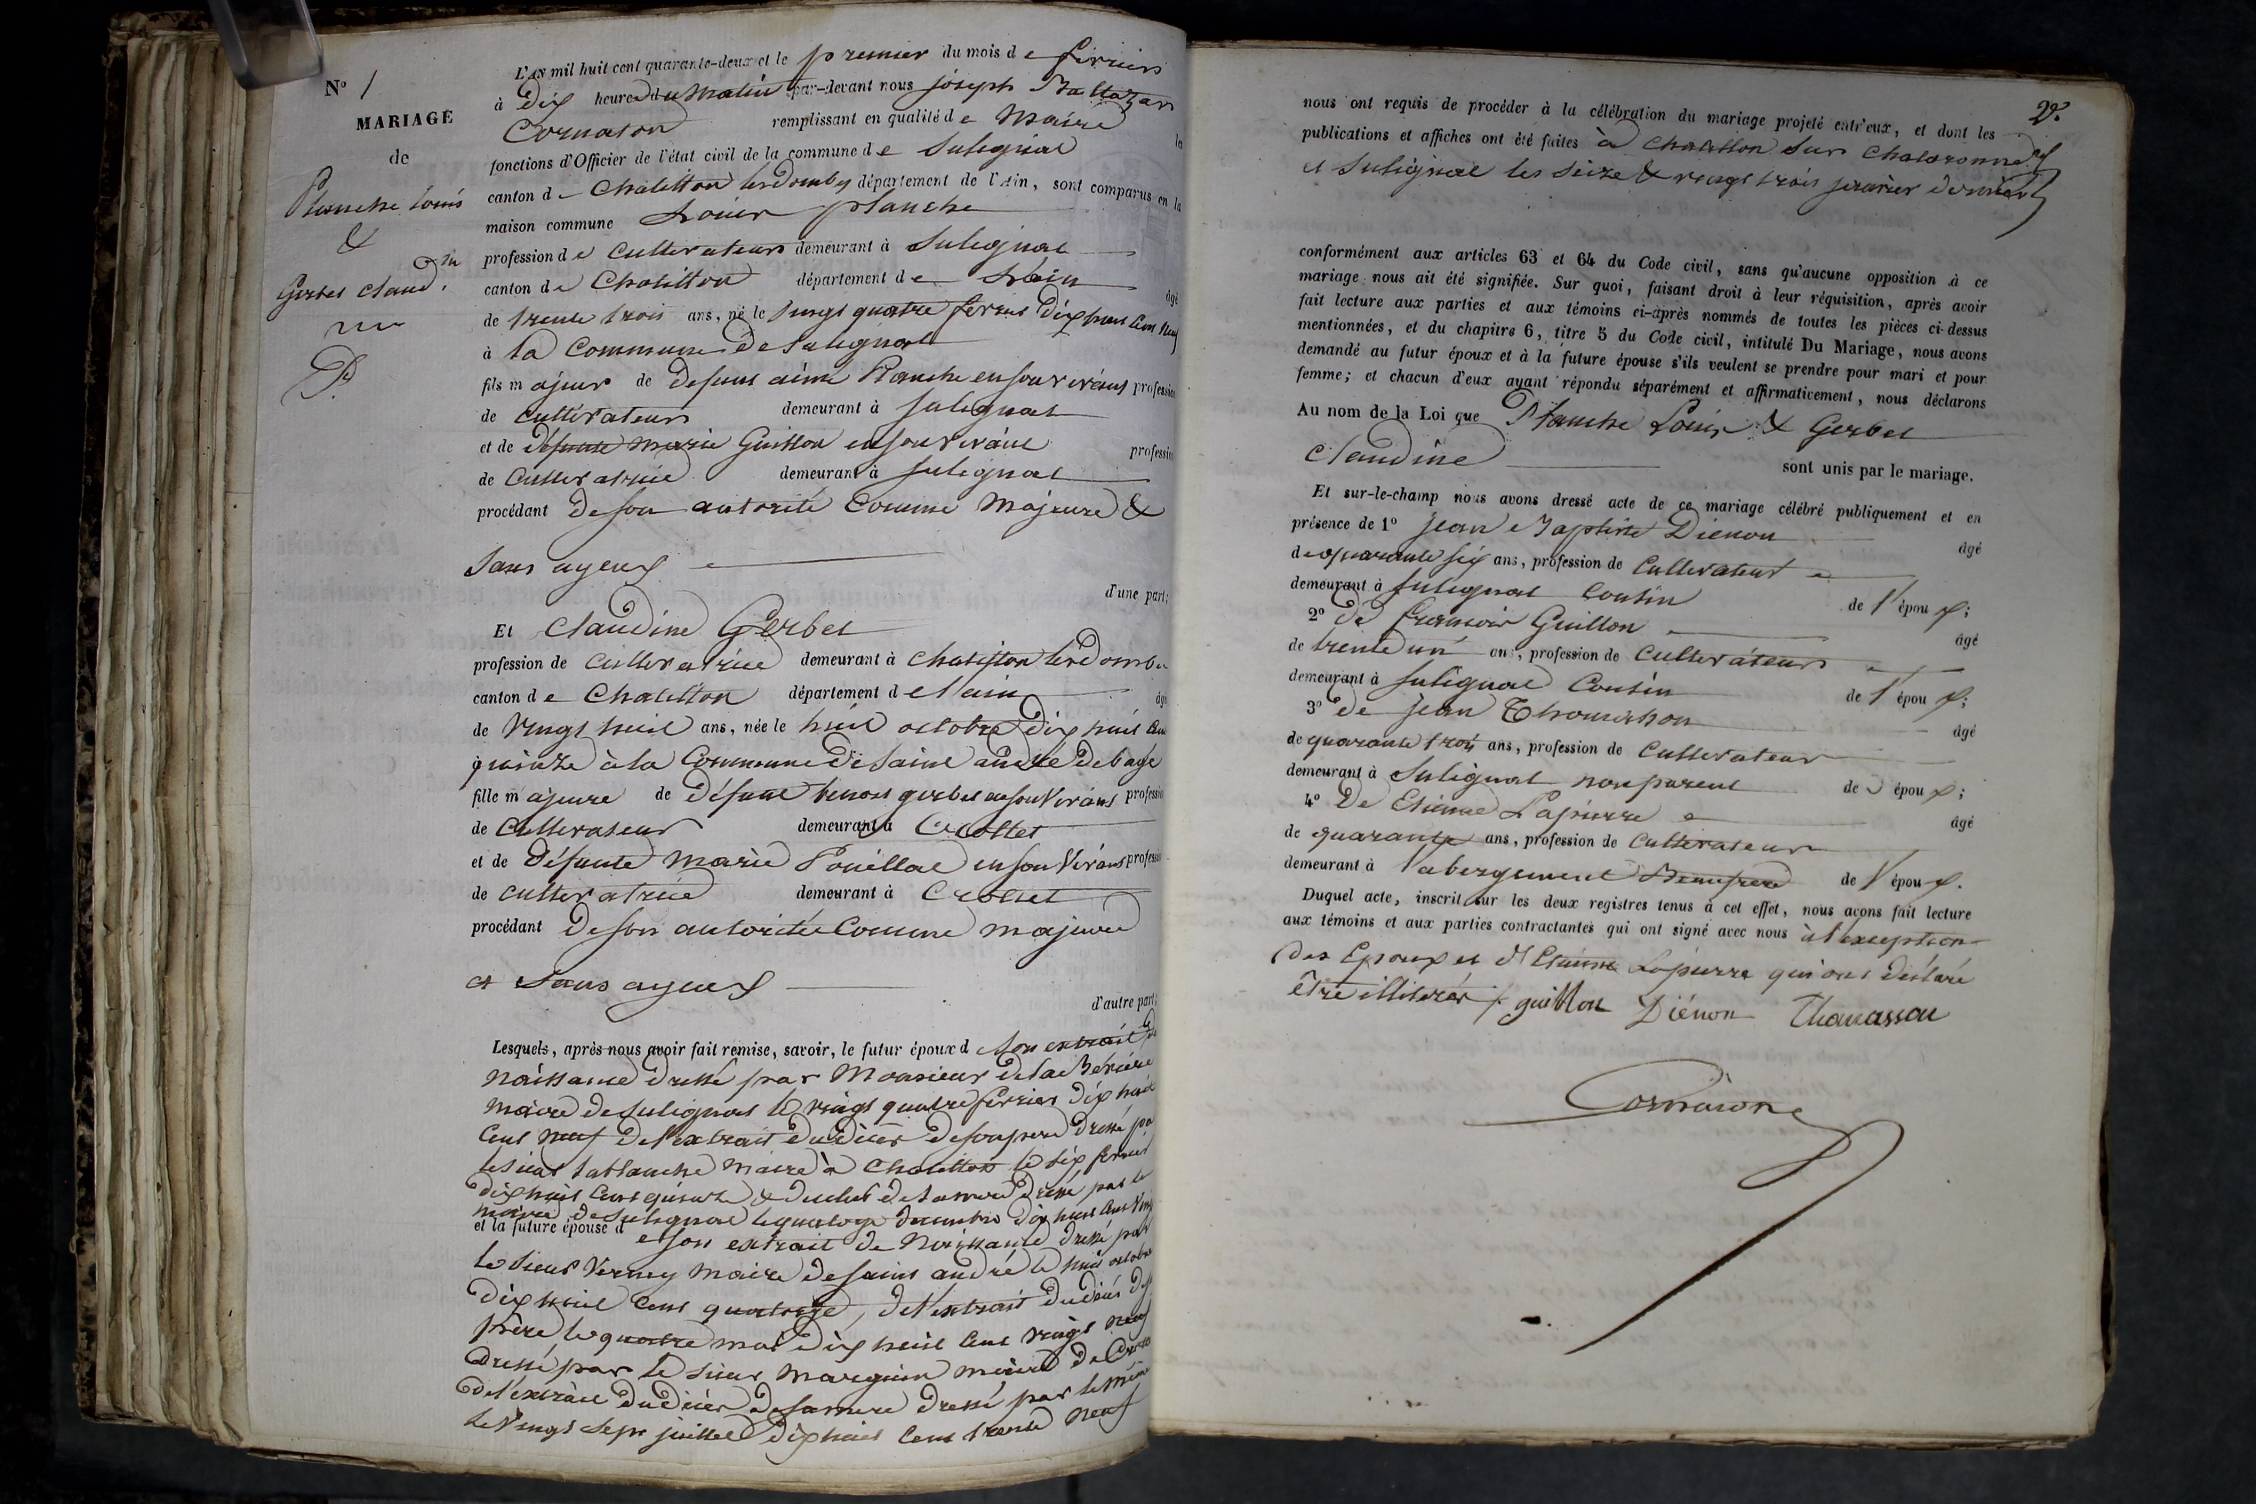 N° 1
MARIAGE
de
Planche Louis
&
Gerbet Claud.ne
L'AN mil huit cent quarante-deux et le premier du mois de fevrier
à Dix heures du Matin par-devant nous joseph Baltazar
Cornaton remplissant en qualité de Maire les
fonctions d'Officier de l'état civil de la commune de Sulignat
canton de Chatillon les Dombes département de l'Ain, sont comparus en la
maison commune Louis planche
profession de cultivateur demeurant à Sulignat
canton de Chatillon département de L'ain âgé
de trente trois ans, né le vingt quatre fevrier Dix huit Cent Neuf
à la Commune de Sulignat
fils majeur de defunt aimé Planche en son vivant profession
de cultivateur demeurant à Sulignat
et de défunte Marie Guillon en son vivant profession
de cultivatrice demeurant à Sulignat
procédant de son autorité Comme Majeure &
Sans ayeux
d'une part;
Et Claudine Gerbet
profession de cultivatrice demeurant à Chatillon les Dombes
canton de Chatillon département de l'ain âgée
de vingt huit ans, née le huit octobre Dix huit Cent
quinze à la Commune de Saint andré de bagé
fille majeure de défunt benoit gerbet en son Vivant profession
de Cultivateur demeurant à Crottet
et de défunte Marie Pouillat en son Vivant profession
de cultivatrice demeurant à Crottet
procédant de son autoritée Comme majeure
et Sans ayeux
d'autre part;
Lesquels, après nous avoir fait remise, savoir, le futur époux de son extrait de
Naissance dressé par Monsieur de la Bévière
Maire de Sulignat le vingt quatre fevrier dix huit
Cent neuf de l'extrait du décès de son pere dressé par
le sieur Lablanche Maire à Chatillon le dix fevrier
dix huit Cent quinze & de celui de sa mere dressé par le
maire de Sulignat le quatorze decembre dix huit Cent Vingt
et la future épouse de son extrait de Naissance dressé par
le sieur Verney Maire de saint andré le huit octobre
Dix huit Cent quatorze, de l'extrait du décès de son
père le quatre mai dix huit Cent vingt neuf
dressé par le sieur Marguin maire de Crottet
de l'extrait du décès de sa mere dressé par le même
le Vingt sept juillet dix huit Cent trente neuf
2.
nous ont requis de procéder à la célébration du mariage projeté entr'eux, et dont les
publications et affiches ont été faites à Chatillon sur Chalaronne
et Sulignat les seize & vingt trois janvier dernier
conformément aux articles 63 et 64 du Code civil, sans qu'aucune opposition à ce
mariage nous ait été signifiée. Sur quoi, faisant droit à leur réquisition, après avoir
fait lecture aux parties et aux témoins ci-après nommés de toutes les pièces ci-dessus
mentionnées, et du chapitre 6, titre 5 du Code civil, intitulé Du Mariage, nous avons
demandé au futur époux et à la future épouse s'ils veulent se prendre pour mari et pour
femme; et chacun d'eux ayant répondu séparément et affirmativement, nous déclarons
Au nom de la Loi que Planche Louis & Gerbet
Claudine sont unis par le mariage.
Et sur-le-champ nous avons dressé acte de ce mariage célébré publiquement et en
présence de 1° jean Baptiste Diénon âgé
de quarante six ans, profession de Cultivateur
demeurant à Sulignat Cousin de l'époux;
2° De francois Guillon âgé
de trente un ans, profession de Cultivateur
demeurant à Sulignat Cousin de l'époux;
3° de jean Thomasson âgé
de quarante trois ans, profession de Cultivateur
demeurant à Sulignat non parent de époux;
4° De Etienne Lapierre âgé
de quarante ans, profession de Cultivateur
demeurant à l'abergement Beaufrere de l'époux.
Duquel acte, inscrit sur les deux registres tenus à cet effet, nous avons fait lecture
aux témoins et aux parties contractantes qui ont signé avec nous à l'exception
des Epoux et d'Etienne Lapierre qui ont déclaré
être illitérés /. guillon Diénon Thomasson
Cornaton